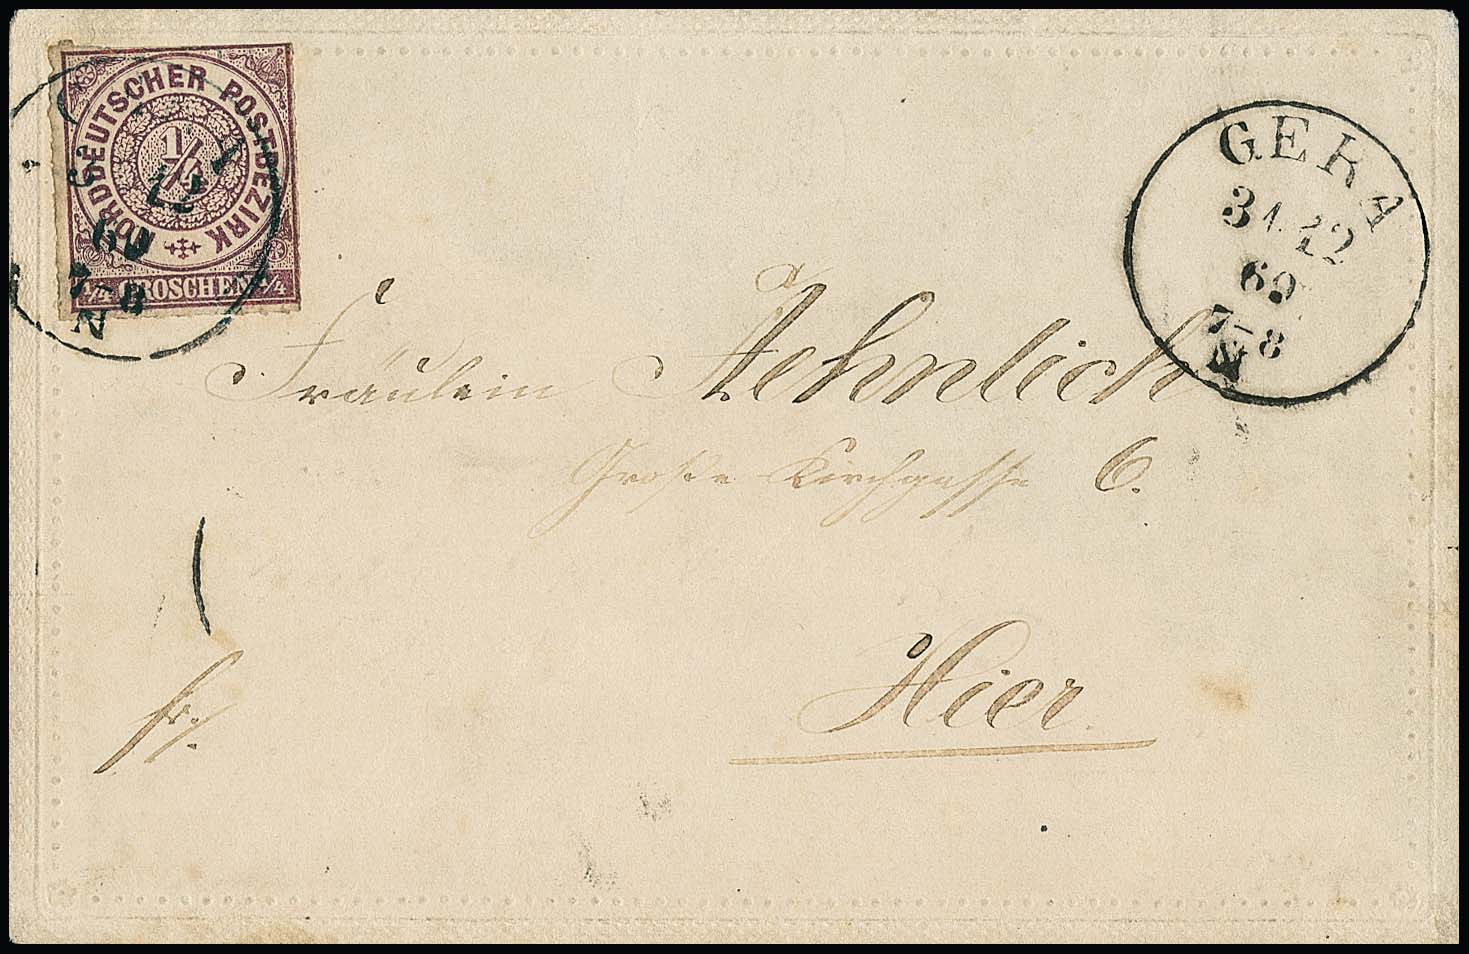 NORDDEUTSCHER POSTBEZIRK
1/4
1/4 GROSCHEN 1/4
GERA
31.12
69
7-8
N
69
7-8
N
Fräulein Aehnlich
Große Kirchgasse 6.
Hier.
fr.